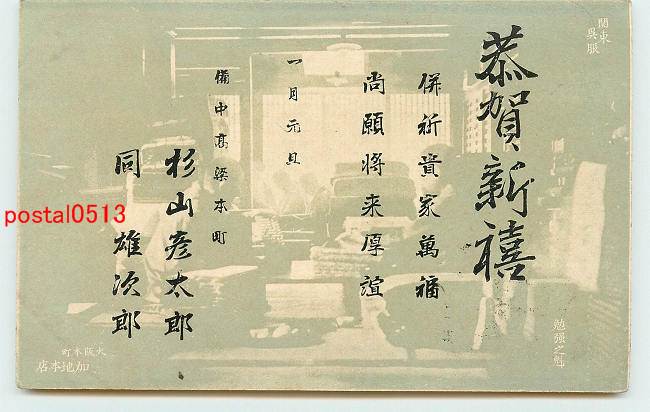 関東
呉服
恭賀新禧
併祈貴家萬福
尚願将来厚誼
一月元旦
備中高梁本町
杉山彦太郎
同 雄次郎
勉強之魁
大阪本町
加地本店
postal0513